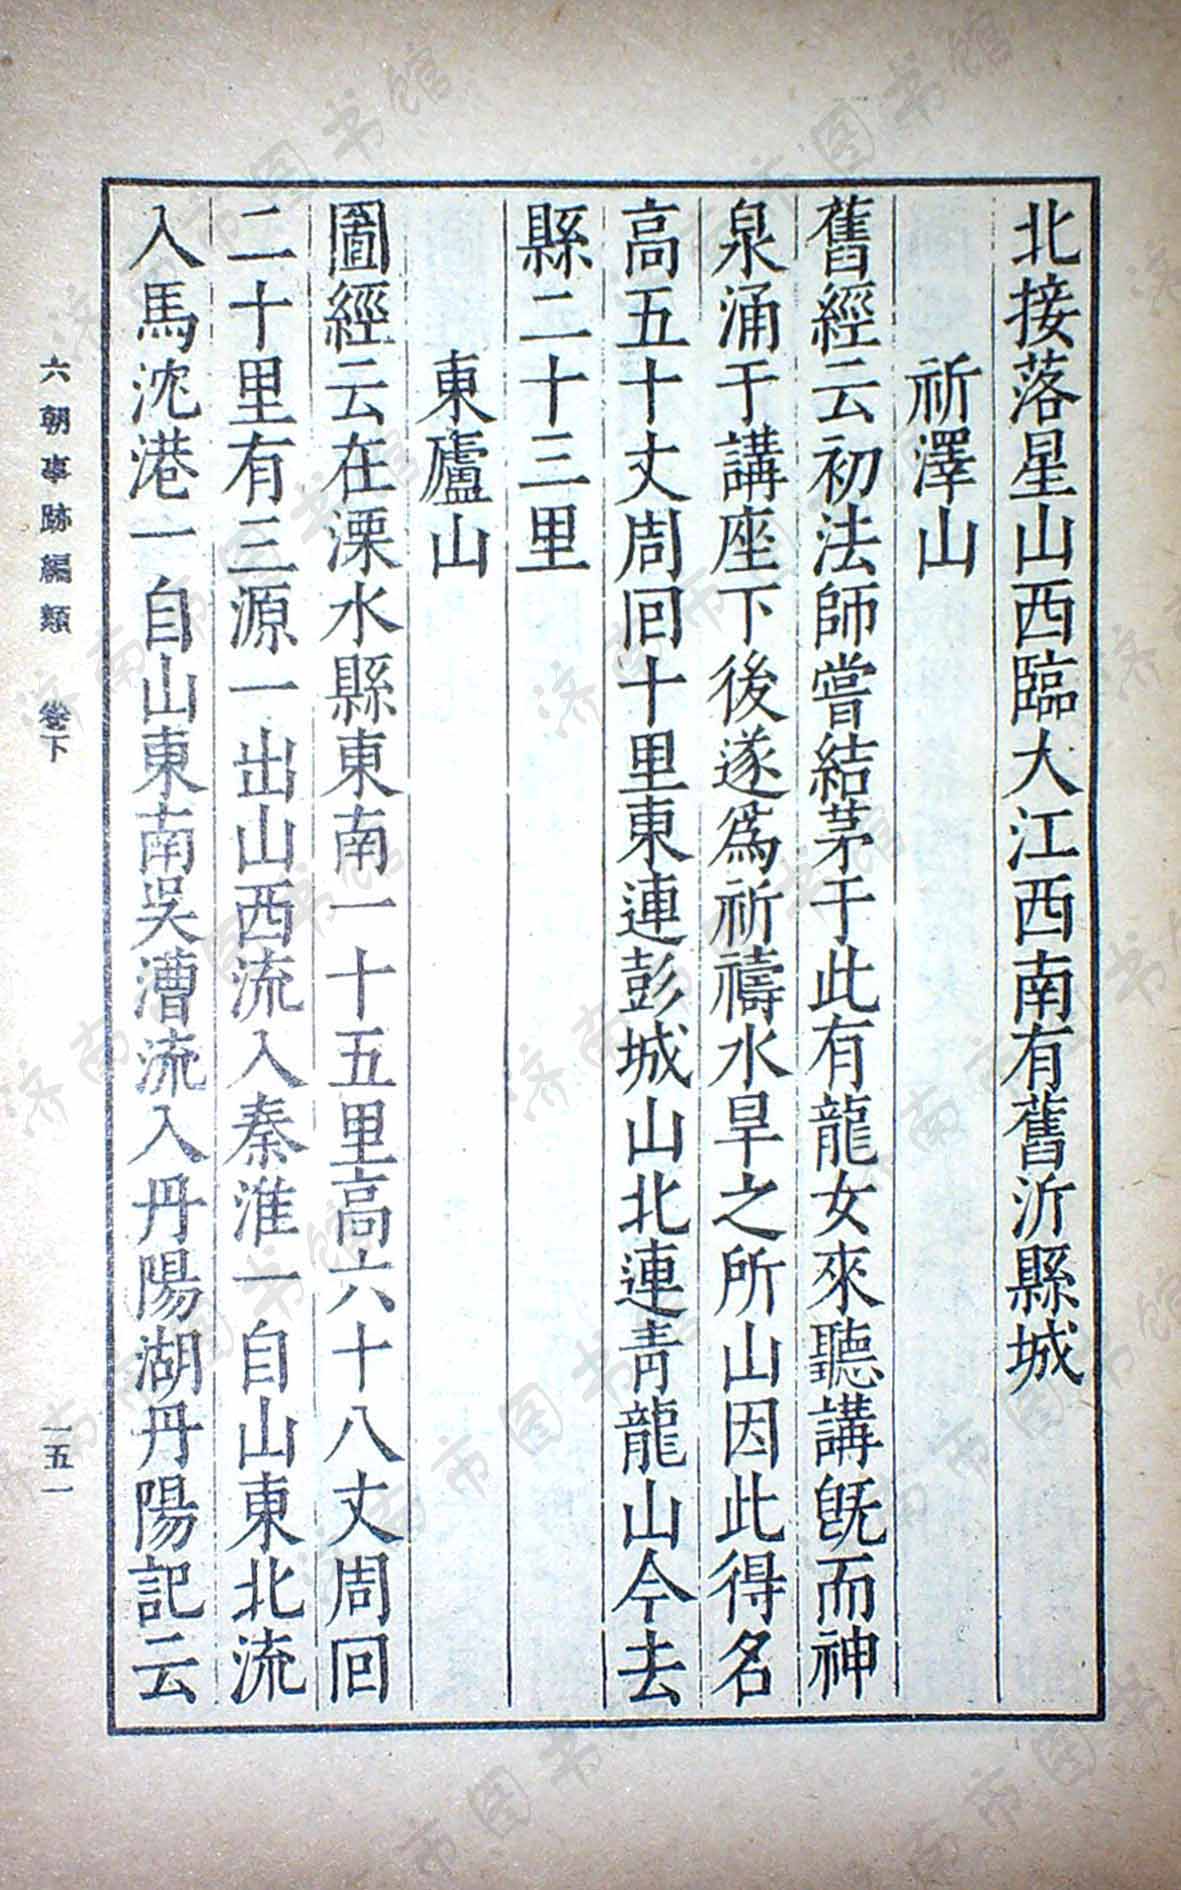 北接落星山西臨大江西南有舊沂縣城
祈澤山
舊經云初法師嘗結茅于此有龍女來聽講旣而神
泉涌于講座下後遂爲祈禱水旱之所山因此得名
高五十丈周回十里東連彭城山北連青龍山今去
縣二十三里
東廬山
圖經云在溧水縣東南一十五里高六十八丈周回
二十里有三源一出山西流入秦淮一自山東北流
入馬沈港一自山東南吳漕流入丹陽湖丹陽記云
六朝事跡編類 卷下
一五一
济南市图书馆